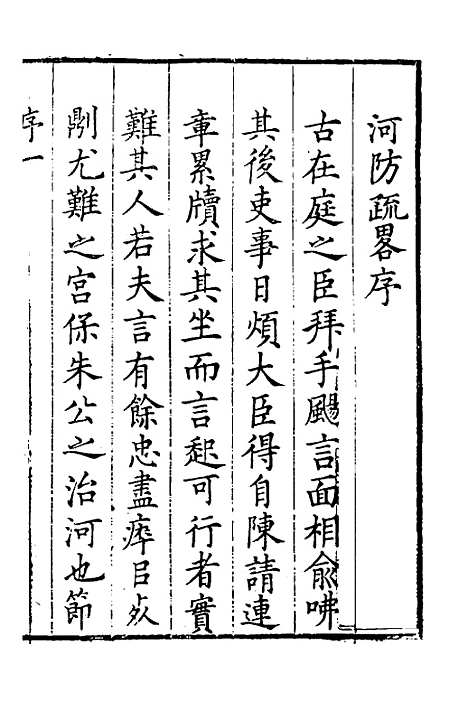 河防疏畧序
古在庭之臣拜手颺言面相俞咈
其後吏事日煩大臣得自陳請連
章累牘求其坐而言起可行者實
難其人若夫言有餘忠盡瘁㠯歿
劘尤難之宫保朱公之治河也節
序一